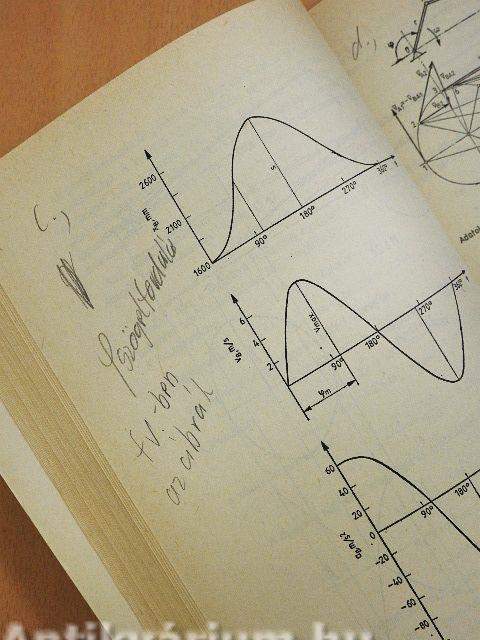 d.,
c.,
φ szögelfordulás
fv.-ben
az ábrák
2600
2100
1600
x_B, mm
s
90°
180°
270°
360°
t
6
4
2
v_B m/s
v_max
90°
180°
270°
360°
t
φm
60
40
20
0
-20
-40
-60
-80
a_B m/s²
90°
180°
2
3
Adatok
Antikvárium.hu